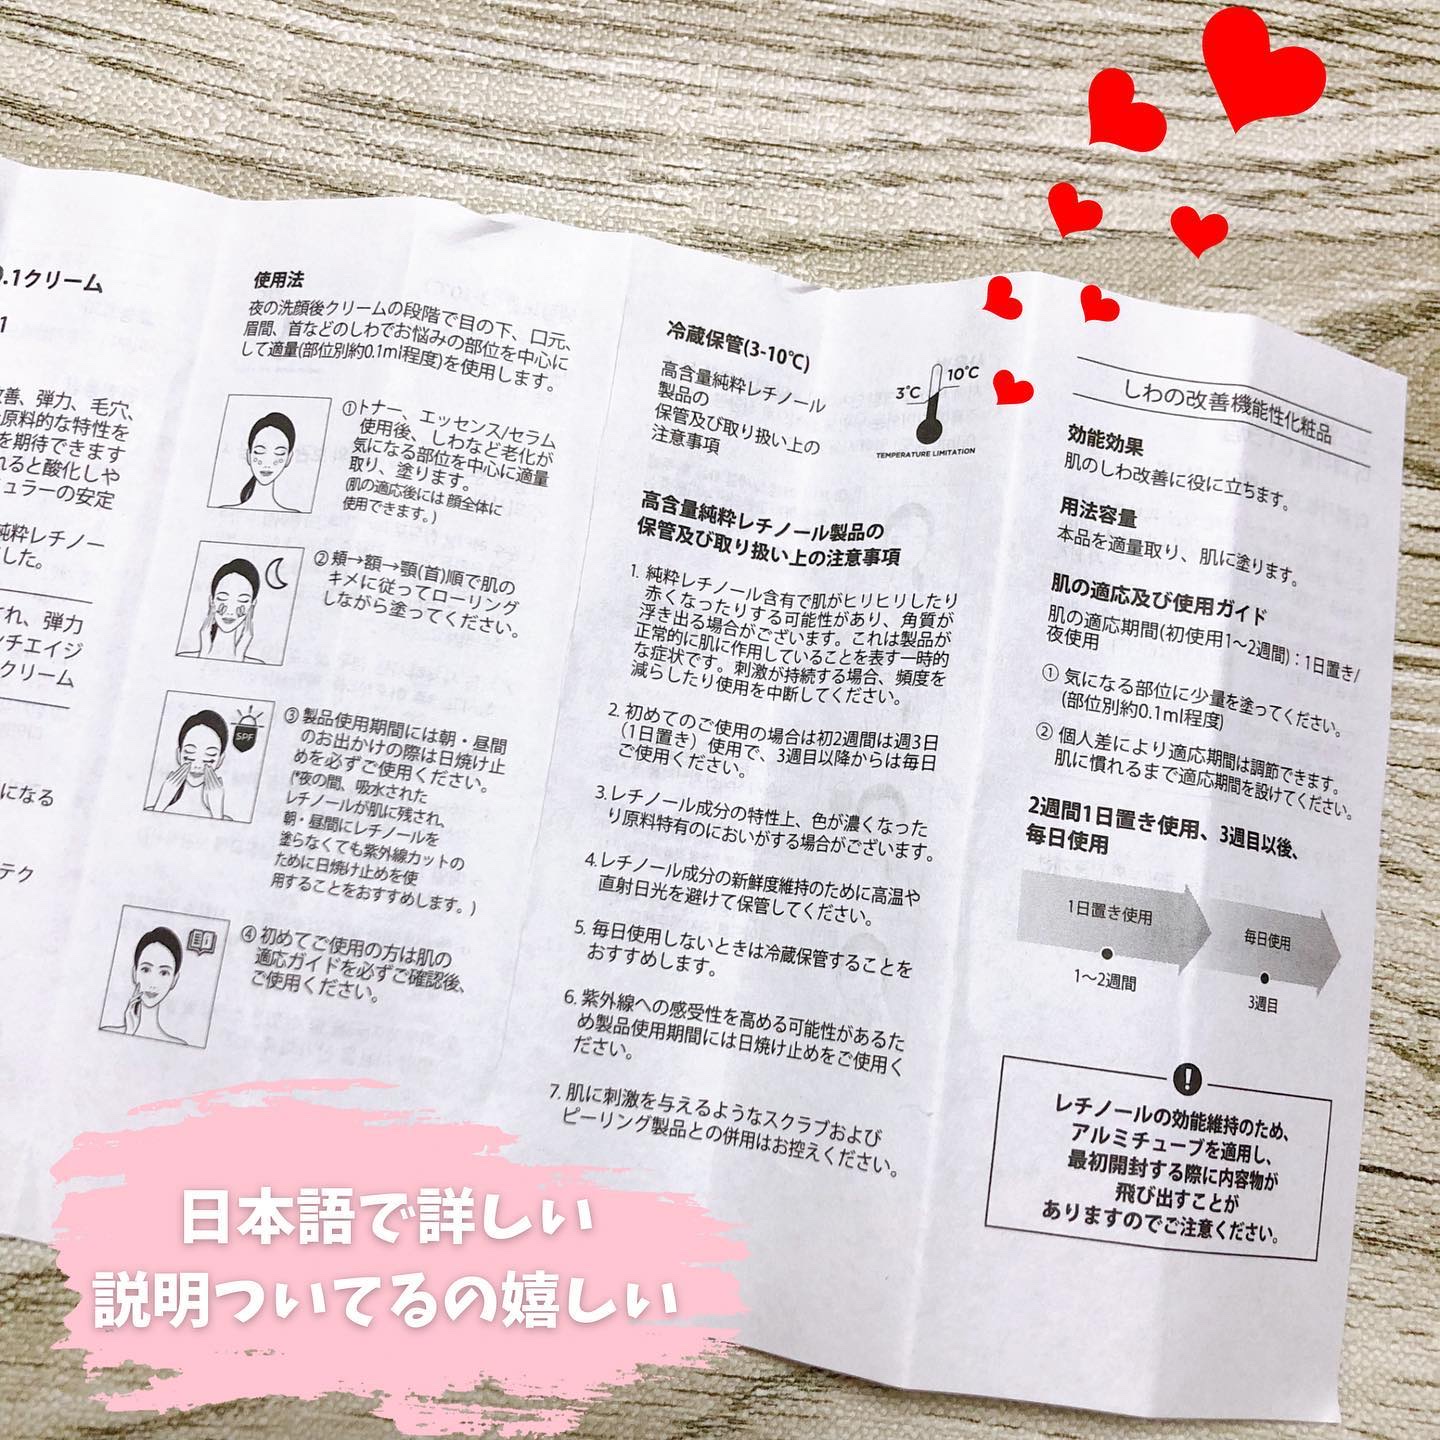 .1クリーム
1
改善、弾力、毛穴、
原料的な特性を
を期待できます
れると酸化しや
ュラーの安定
純粋レチノー
した。
され、弾力
ンチエイジ
クリーム
になる
テク
使用法
夜の洗顔後クリームの段階で目の下、口元、
眉間、首などのしわでお悩みの部位を中心に
して適量(部位別約0.1ml程度)を使用します。
①トナー、エッセンス/セラム
使用後、しわなど老化が
気になる部位を中心に適量
取り、塗ります。
(肌の適応後には 顔全体に
使用できます。)
②頬→額→顎(首)順で肌の
キメに従ってローリング
しながら塗ってください。
SPF
③製品使用期間には朝・昼間
のお出かけの際は日焼け止
めを必ずご使用ください。
(*夜の間、吸水された
レチノールが肌に残され、
朝・昼間にレチノールを
塗らなくても紫外線カットの
ために日焼け止めを使
用することをおすすめします。)
④初めてご使用の方は肌の
適応ガイドを必ずご確認後、
ご使用ください。
冷蔵保管(3-10℃)
高含量純粋レチノール
製品の
保管及び取り扱い上の
注意事項
10℃
3℃
TEMPERATURE LIMITATION
高含量純粋レチノール製品の
保管及び取り扱い上の注意事項
1. 純粋レチノール含有で肌がヒリヒリしたり
赤くなったりする可能性があり、角質が
浮き出る場合がございます。これは製品が
正常的に肌に作用していることを表す一時的
な症状です。刺激が持続する場合、頻度を
減らしたり使用を中断してください。
2. 初めてのご使用の場合は初2週間は週3日
（1日置き）使用で、3週目以降からは毎日
ご使用ください。
3.レチノール成分の特性上、色が濃くなった
り原料特有のにおいがする場合がございます。
4.レチノール成分の新鮮度維持のために高温や
直射日光を避けて保管してください。
5. 毎日使用しないときは冷蔵保管することを
おすすめします。
6. 紫外線への感受性を高める可能性があるた
め製品使用期間には日焼け止めをご使用く
ださい。
7. 肌に刺激を与えるようなスクラブおよび
ピーリング製品との併用はお控えください。
しわの改善機能性化粧品
効能効果
肌のしわ改善に役に立ちます。
用法容量
本品を適量取り、肌に塗ります。
肌の適応及び使用ガイド
肌の適応期間(初使用1～2週間)：1日置き/
夜使用
① 気になる部位に少量を塗ってください。
(部位別約0.1ml程度)
② 個人差により適応期間は調節できます。
肌に慣れるまで適応期間を設けてください。
2週間1日置き使用、3週目以後、
毎日使用
1日置き使用
毎日使用
1～2週間
3週目
!
レチノールの効能維持のため、
アルミチューブを適用し、
最初開封する際に内容物が
飛び出すことが
ありますのでご注意ください。
日本語で詳しい
説明ついてるの嬉しい